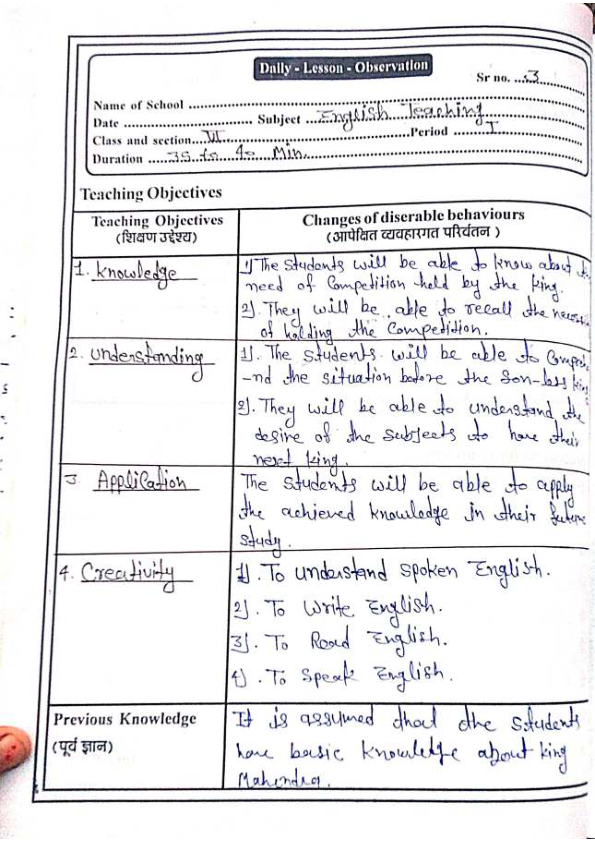 Daily - Lesson - Observation
Sr no. ...3
Name of School
Date Subject English Teaching
Class and section....VI Period I
Duration 35 to 40 Min.
Teaching Objectives
Teaching Objectives
(शिक्षण उद्देश्य)
Changes of diserable behaviours
(आपेक्षित व्यवहारगत परिवंतन )
1. Knowledge
1) The Students will be able to know about
need of Competition held by the king.
2). They will be able to recall the
of holding the Competition.
2. Understanding
1). The Students will be able to Compreh
-nd the situation before the Son-less king
2). They will be able to understand the
desire of the subjects to have their
next king.
3. Application
The Students will be able to apply
the achieved knowledge in their future
study.
4. Creativity
1). To understand spoken English.
2). To Write English.
3). To Read English.
4). To Speak English.
Previous Knowledge
(पूर्व ज्ञान)
It is assumed that the Students
have basic knowledge about king
Mahendra.